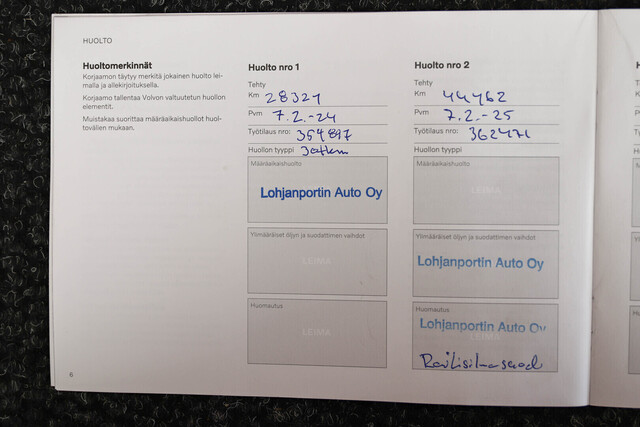 HUOLTO
Huoltomerkinnät
Korjaamon täytyy merkitä jokainen huolto lei-
malla ja allekirjoituksella.
Korjaamo tallentaa Volvon valtuutetun huollon
elementit.
Muistakaa suorittaa määräaikaishuollot huol-
tovälien mukaan.
Huolto nro 1
Tehty
Km 28321
Pvm 7.2.-24
Työtilaus nro: 354897
Huollon tyyppi
Määräaikaishuolto
Lohjanportin Auto Oy
Ylimääräiset öljyn ja suodattimen vaihdot
LEIMA
Huomautus
LEIMA
Huolto nro 2
Tehty
Km 44762
Pvm 7.2.-25
Työtilaus nro: 362471
Huollon tyyppi
Määräaikaishuolto
LEIMA
Ylimääräiset öljyn ja suodattimen vaihdot
Lohjanportin Auto Oy
Huomautus
Lohjanportin Auto Oy
LEIMA
6